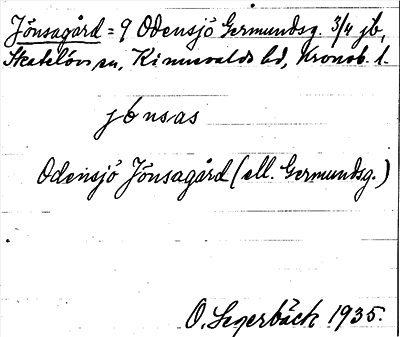 Jönsagård = 9 Odensjö Germundsg. 3/4 jb,
Skatelövs sn, Kinnevalds hd, Kronob. l.
jönsas
Odensjö Jönsagård (ell. Germundsg.)
O. Segerbäck 1935.